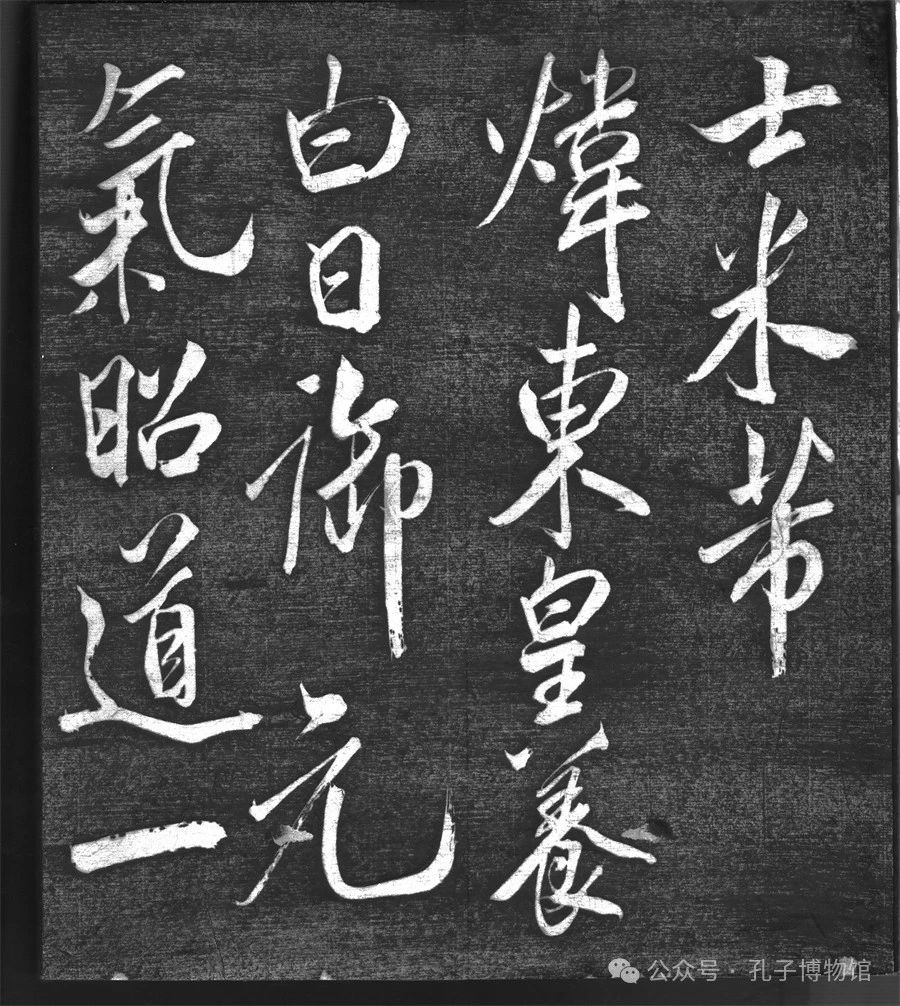 士米芾
煒東皇養
白日御元
氣昭道一
公众号 · 孔子博物馆